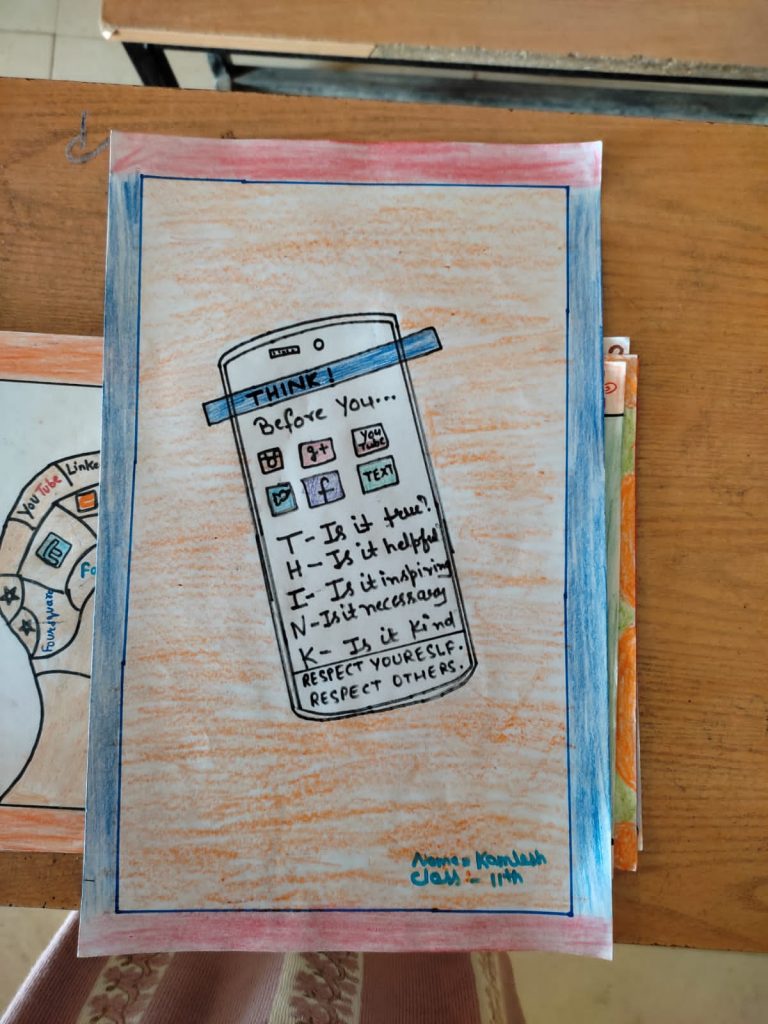 THINK!
Before You...
g+
You
Tube
f
TEXT
T- Is it true?
H- Is it helpful
I- Is it inspiring
N- Is it necessary
K- Is it kind
RESPECT YOURESLF.
RESPECT OTHERS.
Name= Kamlesh
Class - 11th
YouTube
Linke
Foursquare
Fa